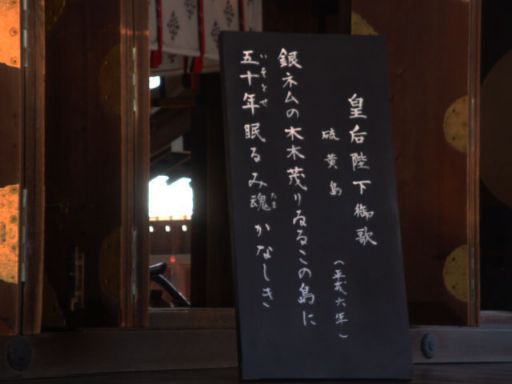 皇后陛下御歌
硫黄島
(平成六年)
銀ネムの木木茂りゐるこの島に
五十年眠るみ魂かなしき
いそとせ
たま